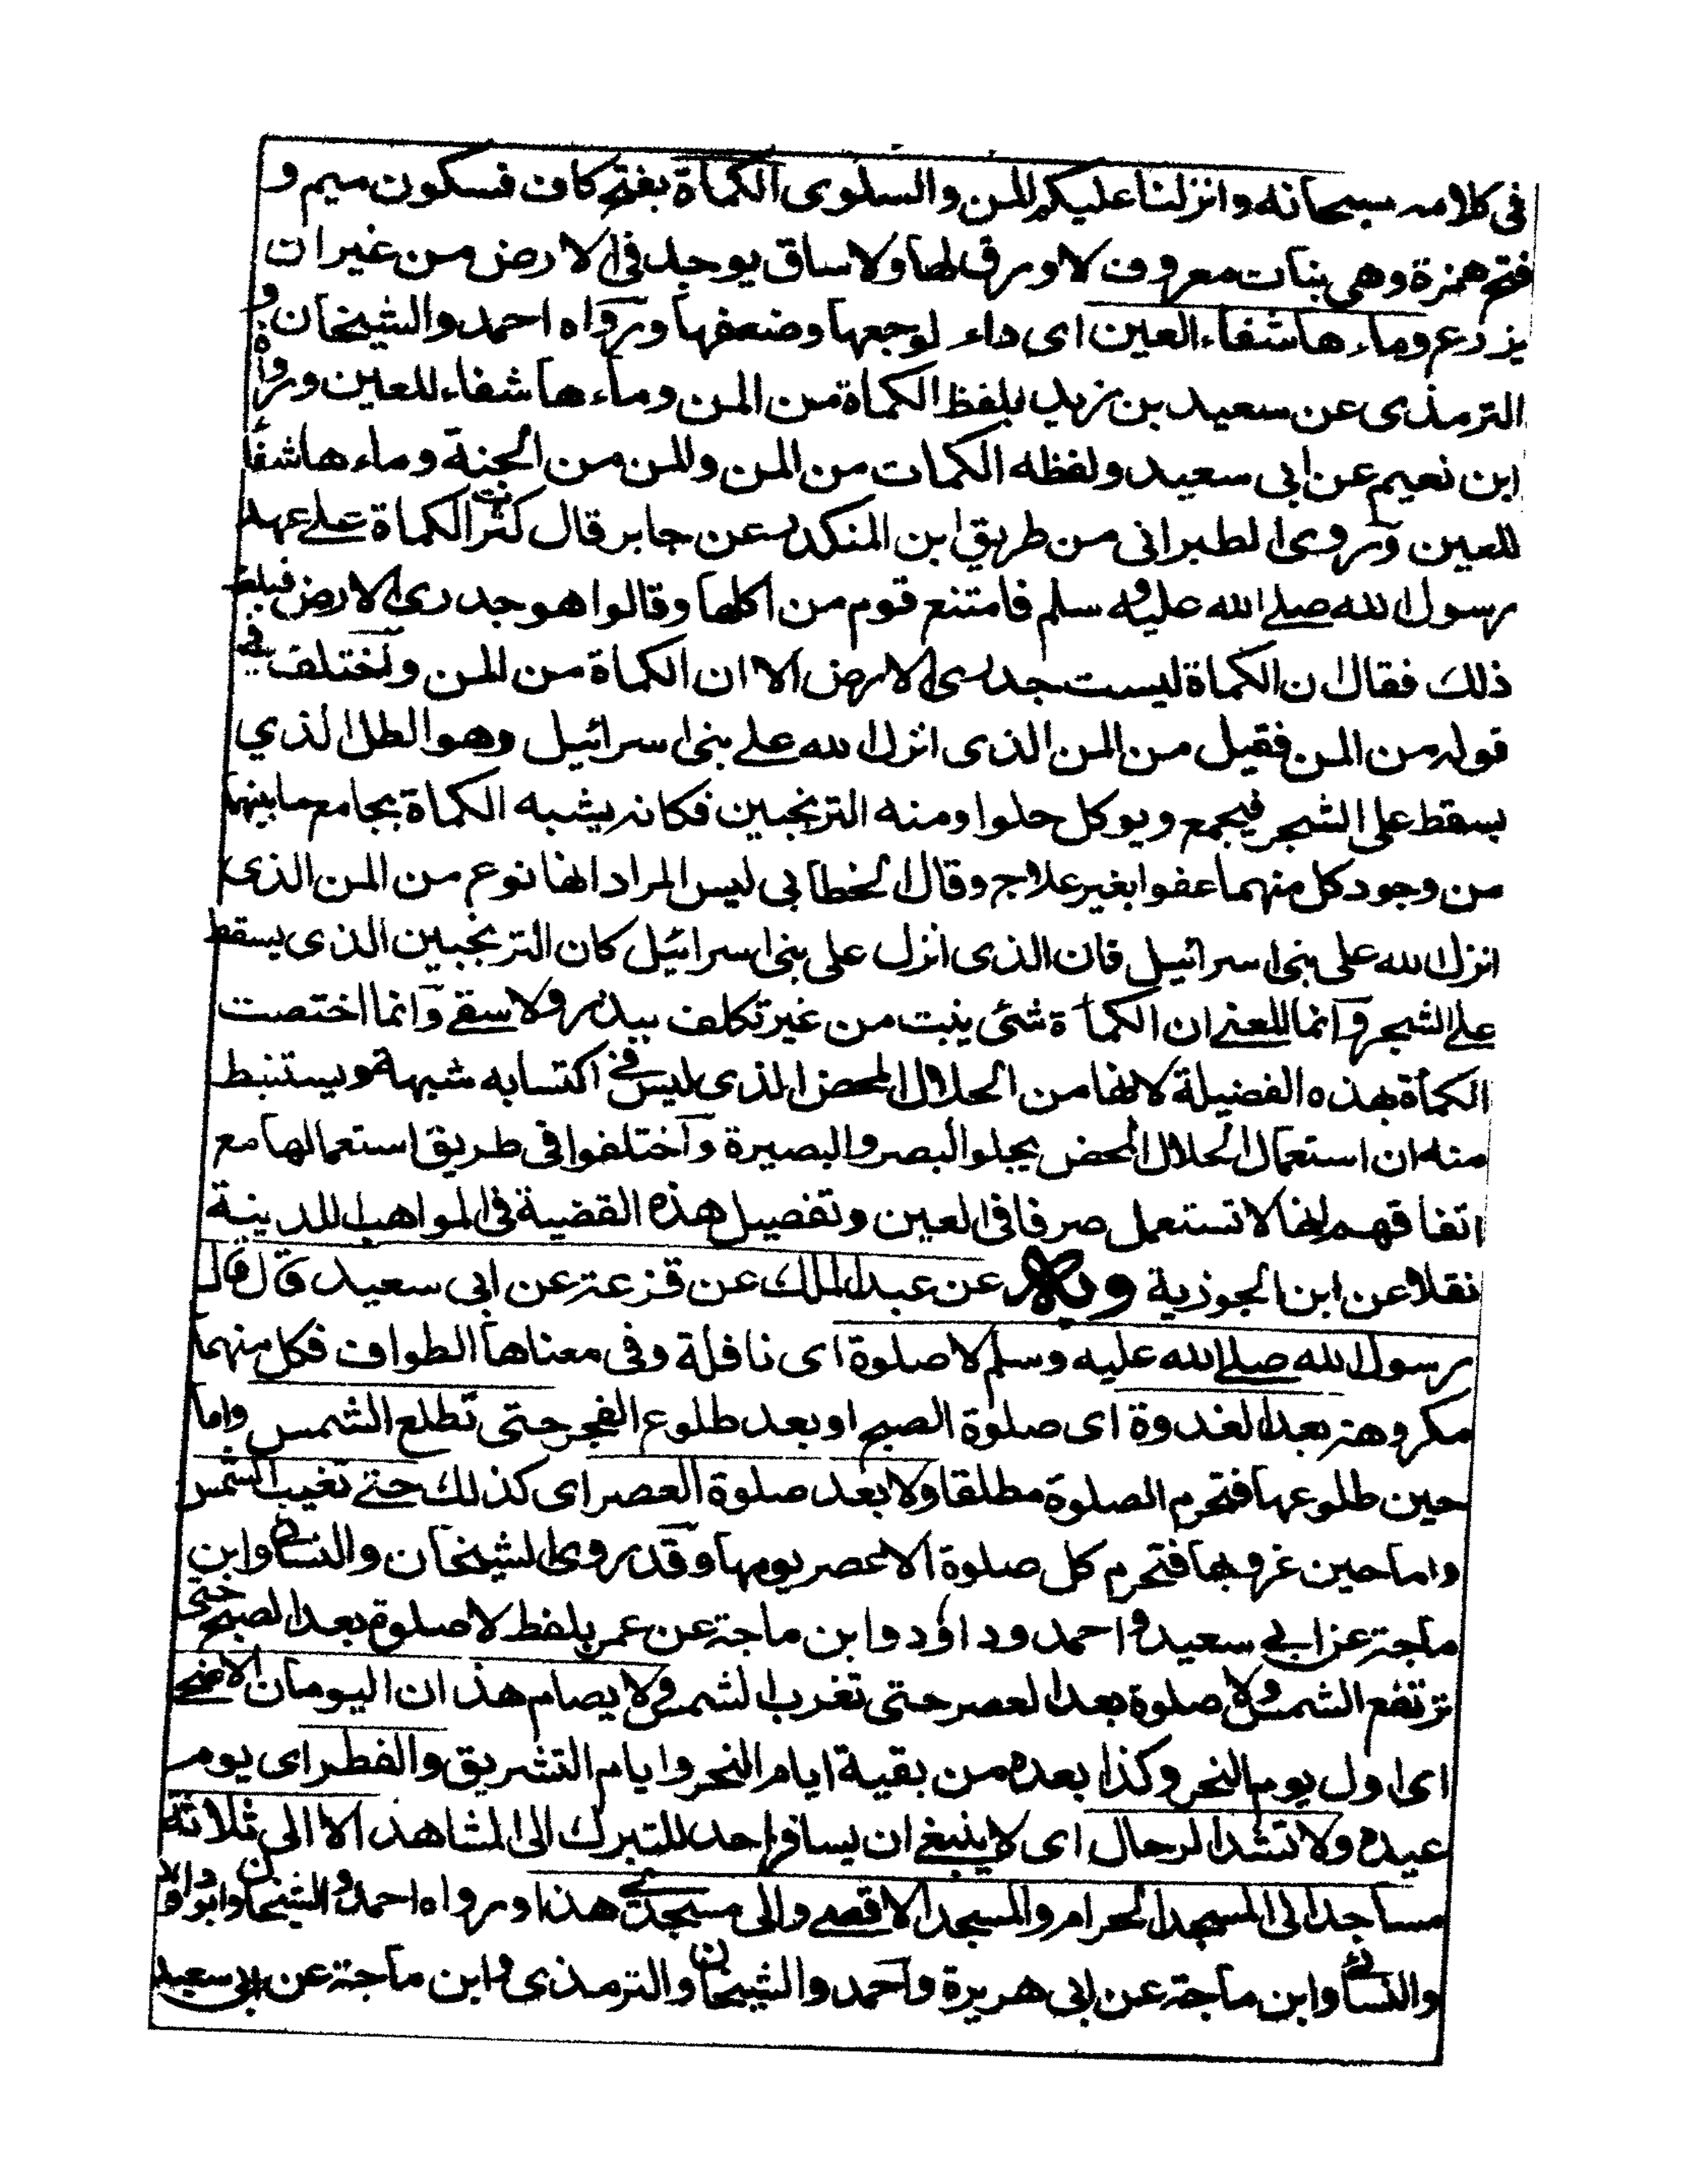 فى كلامه سبحانه وانزلنا عليكم المن والسلوى الكماة بفتح كاف فسكون ميم و
فتح همزة وهى بنات معروف لا ورق لها ولا ساق يوجد فى الارض من غير ان
يزرع وماءها شفاء العين اى داء لوجعها وضعفها ورواه احمد والشيخان و
الترمذى عن سعيد بن زيد بلفظ الكماة من المن وماءها شفاء للعين ورواه
ابن نعيم عن ابى سعيد ولفظه الكمات من المن والمن من الجنة وماءها شفأ
للعين وروى الطبرانى من طريق ابن المنكدر عن جابر قال كثرت الكماة على عهد
رسول الله صلى الله عليه وسلم فامتنع قوم من اكلها وقالوا هو جدرى الارض فبلغ
ذلك فقال ان الكماة ليست جدرى الارض الا ان الكماة من المن واختلف فى
قوله من المن فقيل من المن الذى انزل الله على بنى اسرائيل وهو الطل الذي
يسقط على الشجر فيجمع ويوكل حلوا ومنه الترنجبين فكانه يشبه الكماة بجامع ما بينهما
من وجود كل منهما عفوا بغير علاج وقال الخطابى ليس المراد انها نوع من المن الذى
انزل الله على بنى اسرائيل فان الذى انزل على بنى اسرائيل كان الترنجبين الذى يسقط
على الشجر وانما المعنى ان الكماة شئ ينبت من غير تكلف ببذر ولا سقى وانما اختصت
الكمأة بهذه الفضيلة لانها من الحلال المحض الذى ليس فى اكتسابه شبهة ويستنبط
منه ان استعمال الحلال المحض يجلو البصر والبصيرة واختلفوا فى طريق استعمالها مع
اتفاقهم انها لا تستعمل صرفا فى العين وتفصيل هذه القضية فى المواهب اللدينية
نقلا عن ابن الجوزية وبه عن عبد الملك عن قزعة عن ابى سعيد قال قال
رسول الله صلى الله عليه وسلم لا صلوة اى نافلة وفى معناها الطواف فكل منهما
مكروهة بعد الغدوة اى صلوة الصبح او بعد طلوع الفجر حتى تطلع الشمس واما
حين طلوعها فتحرم الصلوة مطلقا ولا بعد صلوة العصر اى كذلك حتى تغيب الشمس
واما حين غروبها فتحرم كل صلوة الا عصر يومها وقد روى الشيخان والنسائى وابن
ماجة عن ابي سعيد واحمد وداؤد وابن ماجة عن عمر بلفظ لا صلوة بعد الصبح حتى
ترتفع الشمس ولا صلوة بعد العصر حتى تغرب الشمس ولا يصام هذان اليومان الاضحى
اى اول يوم النحر وكذا بعده من بقية ايام النحر وايام التشريق والفطر اى يوم
عيده ولا تشد الرحال اى لا ينبغى ان يسافر احد للتبرك الى المشاهد الا الى ثلاثة
مساجد الى المسجد الحرام والمسجد الاقصى والى مسجدى هذا ورواه احمد والشيخان وابو داود
والنسائى وابن ماجة عن ابى هريرة واحمد والشيخان والترمذى وابن ماجة عن ابى سعيد